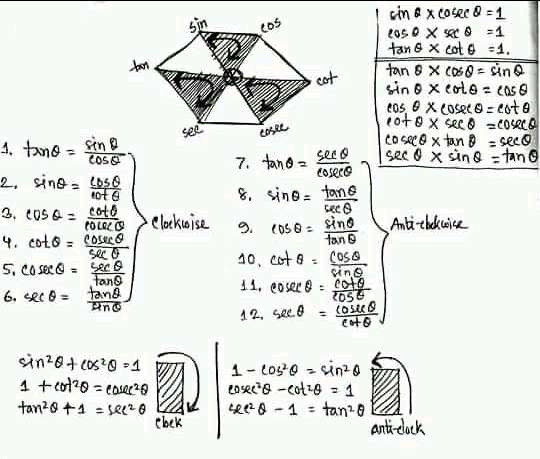 sin cos
tan cot
sec cosec
sin θ × cosec θ = 1
cos θ × sec θ = 1
tan θ × cot θ = 1.
tan θ × cos θ = sin θ
sin θ × cot θ = cos θ
cos θ × cosec θ = cot θ
cot θ × sec θ = cosec θ
cosec θ × tan θ = sec θ
sec θ × sin θ = tan θ
1. tan θ = sin θ / cos θ
2. sin θ = cos θ / cot θ
3. cos θ = cot θ / cosec θ
4. cot θ = cosec θ / sec θ
5. cosec θ = sec θ / tan θ
6. sec θ = tan θ / sin θ
Clockwise
7. tan θ = sec θ / cosec θ
8. sin θ = tan θ / sec θ
9. cos θ = sin θ / tan θ
10. cot θ = cos θ / sin θ
11. cosec θ = cot θ / cos θ
12. sec θ = cosec θ / cot θ
Anti-clockwise
sin²θ + cos²θ = 1
1 + cot²θ = cosec²θ
tan²θ + 1 = sec²θ
clock
1 - cos²θ = sin²θ
cosec²θ - cot²θ = 1
sec²θ - 1 = tan²θ
anti-clock